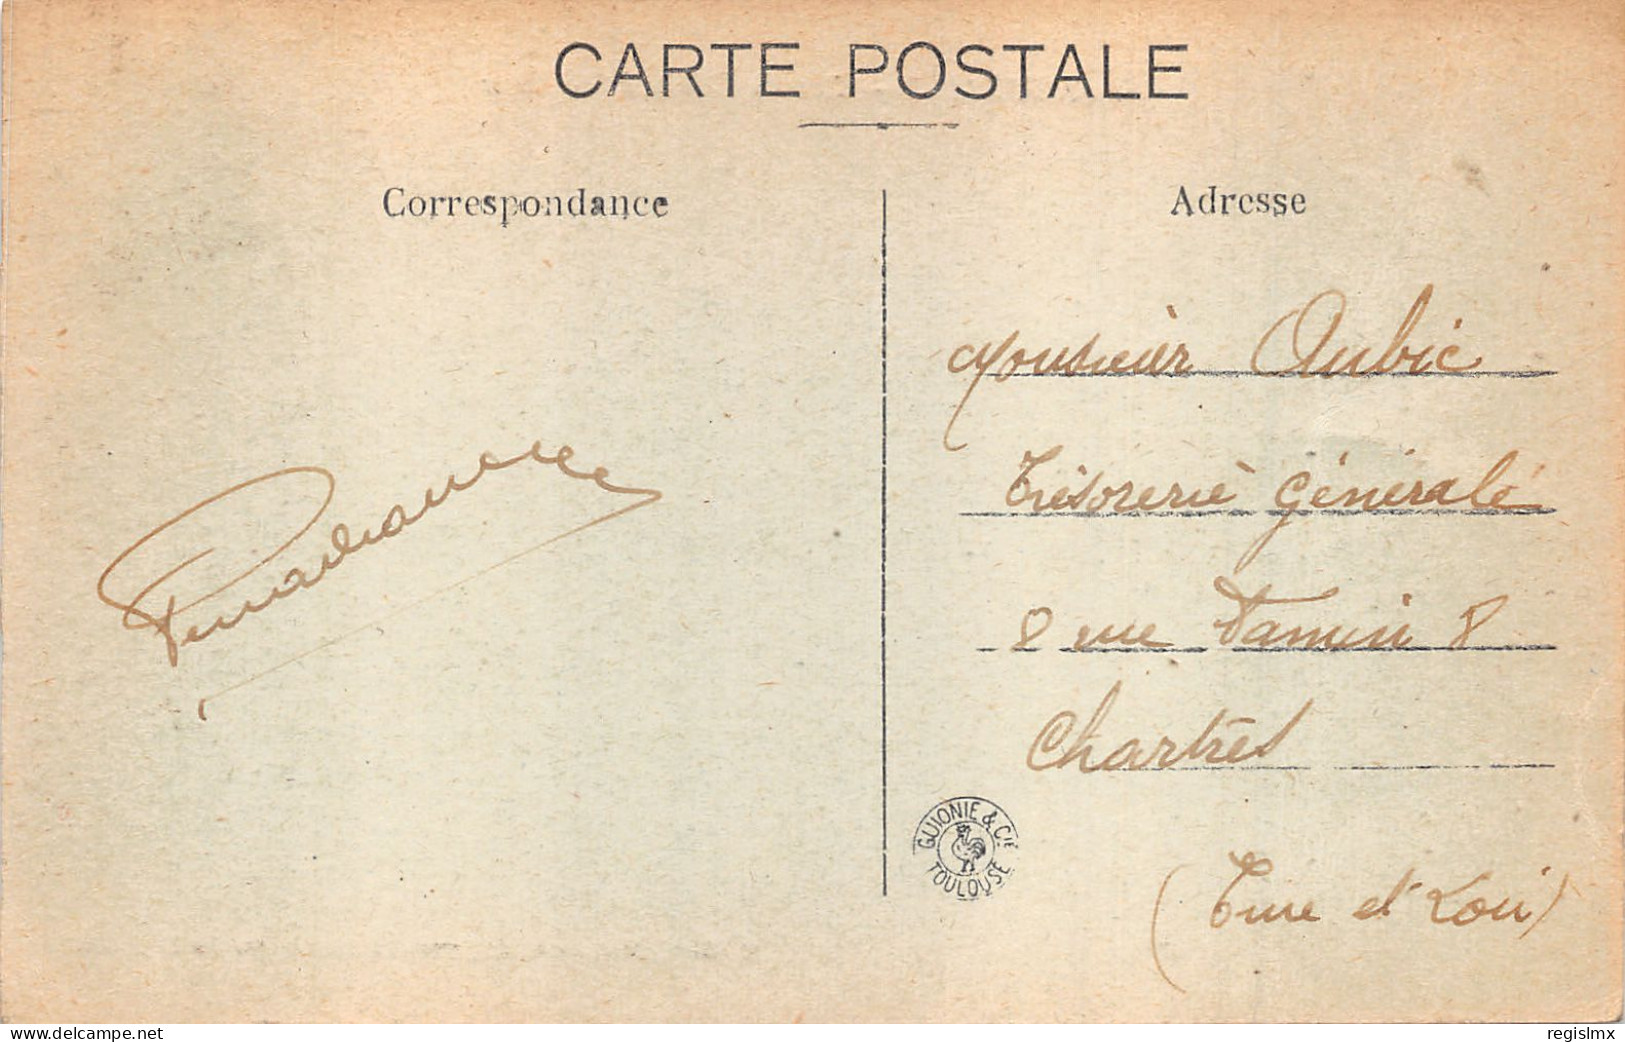 CARTE POSTALE
Correspondance
Adresse
Monsieur Aubic
Trésorerie Générale
8 rue Famin 8
Chartres
(Eure et Loir)
GUIONIE & Cie
TOULOUSE
www.delcampe.net
regislmx